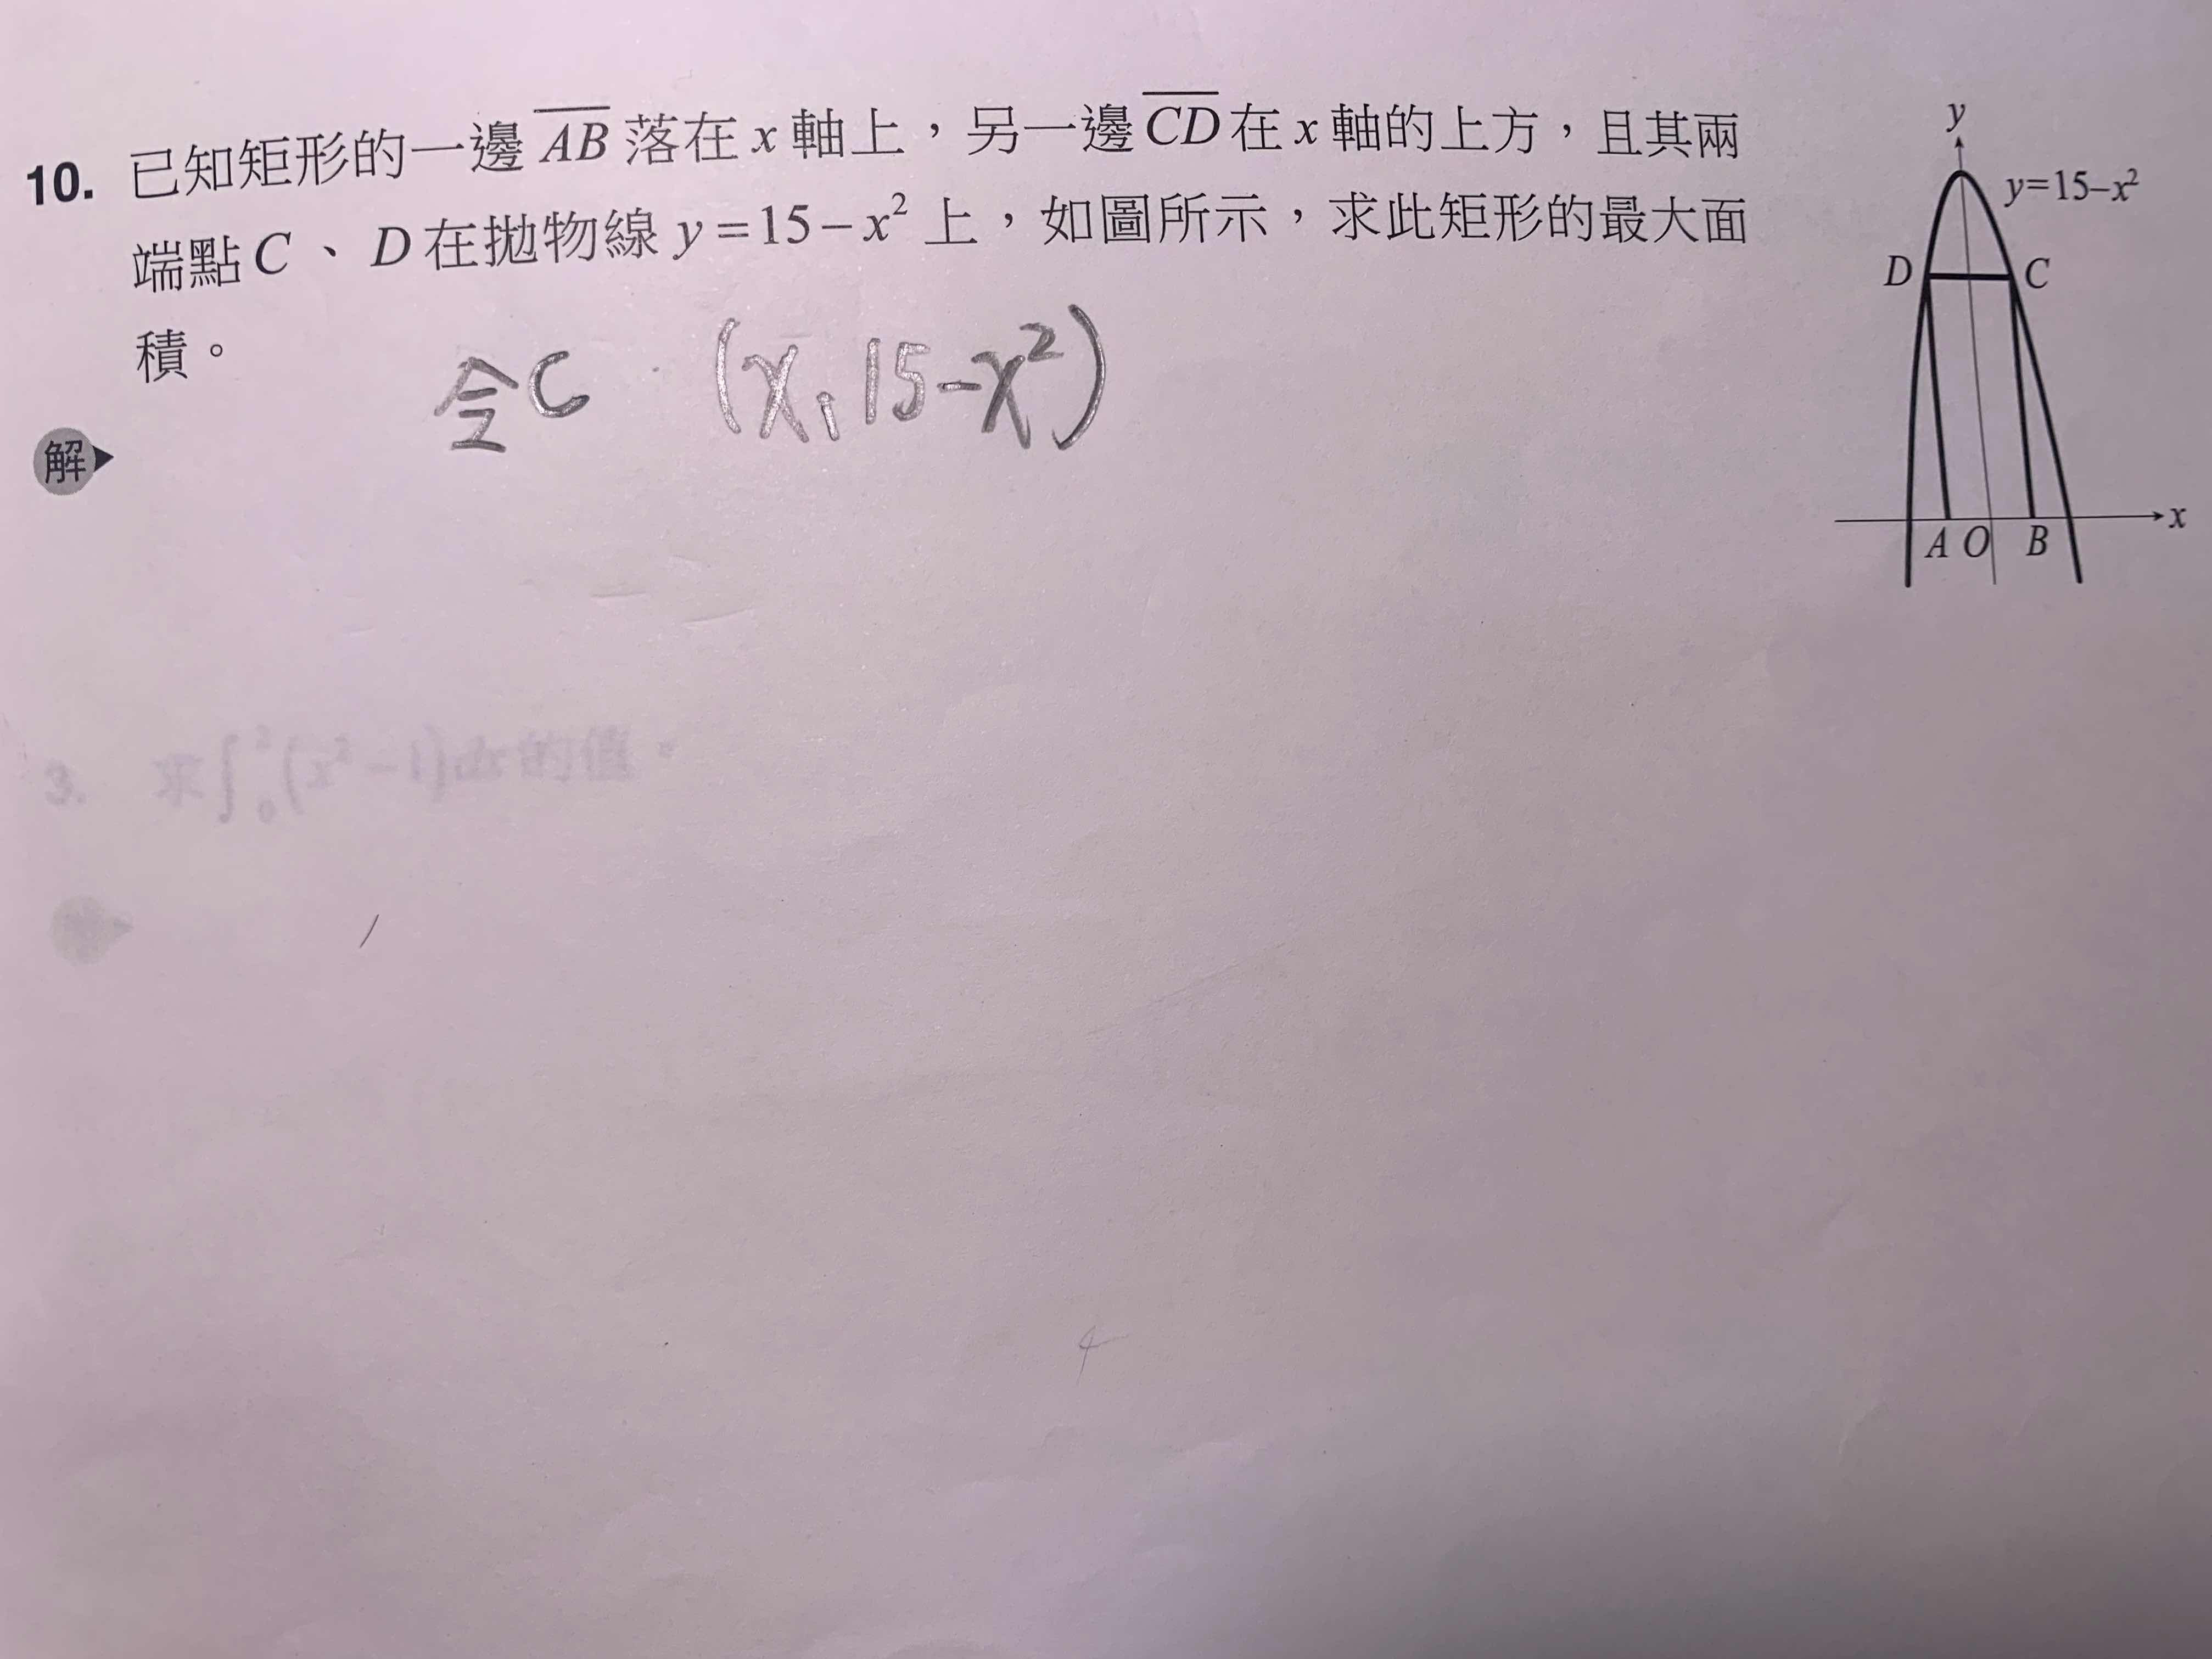 10. 已知矩形的一邊 AB 落在 x 軸上，另一邊 CD 在 x 軸的上方，且其兩
端點 C 、 D 在拋物線 y=15−x² 上，如圖所示，求此矩形的最大面
積。
令C (x, 15−x²)
解
y
y=15−x²
D C
x
A O B
3. 求∫₀²(x²−1)dx的值。
4